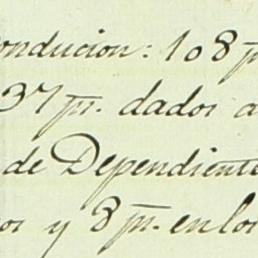 onducion: 108 p
37 pr. dados a
de Dependiente
os y 8 pr. en los